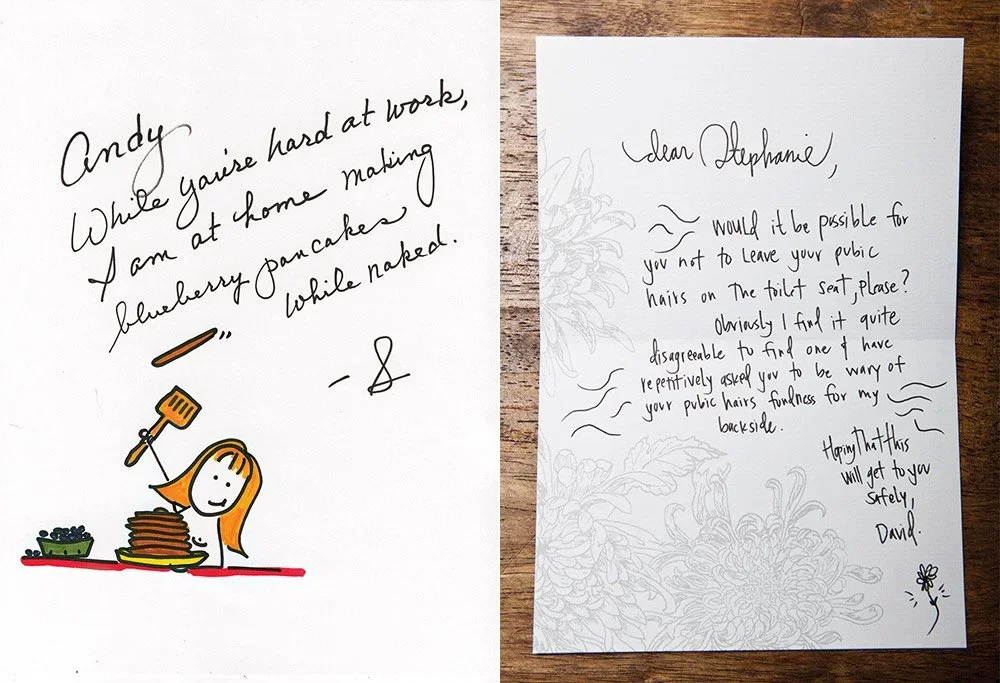 Andy
While you're hard at work,
I am at home making
blueberry pancakes
while naked.
- S
dear Stephanie,
would it be possible for
you not to leave your pubic
hairs on the toilet seat, please?
Obviously I find it quite
disagreeable to find one & have
repetitively asked you to be wary of
your pubic hairs fondness for my
backside.
Hoping that this
will get to you
safely,
David.